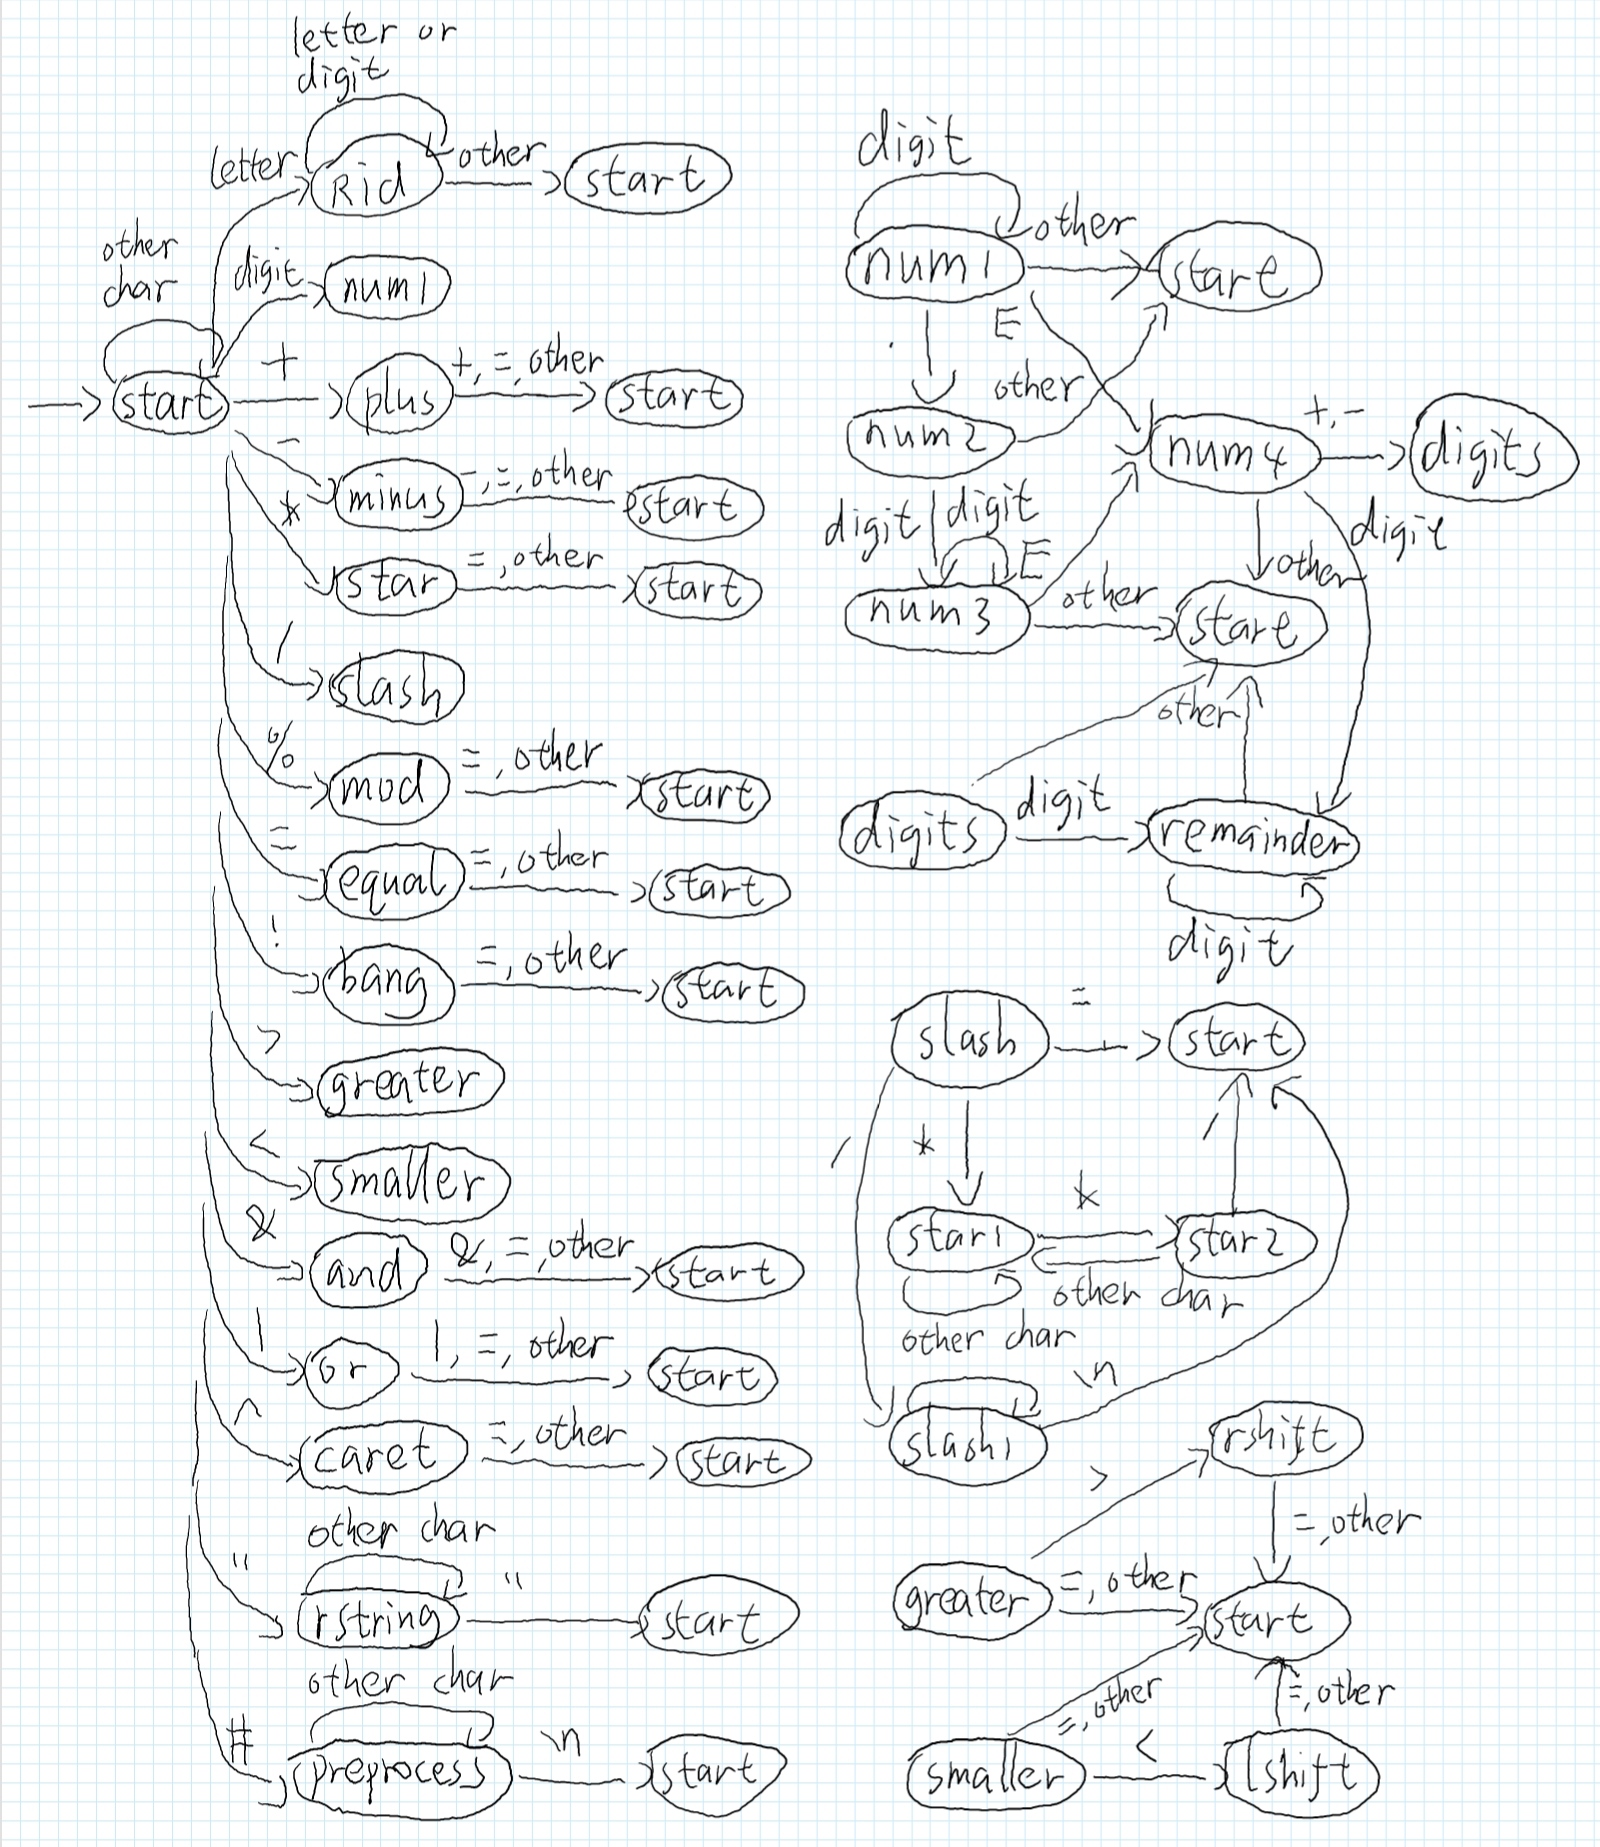 letter or
digit
letter
Rid
other
start
other
char
digit
num1
start
+
plus
+, =, other
start
-
minus
-, =, other
start
*
star
=, other
start
/
slash
%
mod
=, other
start
=
equal
=, other
start
!
bang
=, other
start
>
greater
<
smaller
&
and
&, =, other
start
|
or
|, =, other
start
^
caret
=, other
start
other char
"
rstring
"
start
other char
#
preprocess
\n
start
digit
num1
other
start
E
.
other
num2
num4
+, -
digits
digit
digit
E
digit
other
num3
other
start
other
digits
digit
remainder
digit
slash
=
start
/
*
/
star1
*
star2
other char
other char
\n
slash1
>
rshift
=, other
greater
=, other
start
=, other
=, other
smaller
<
lshift